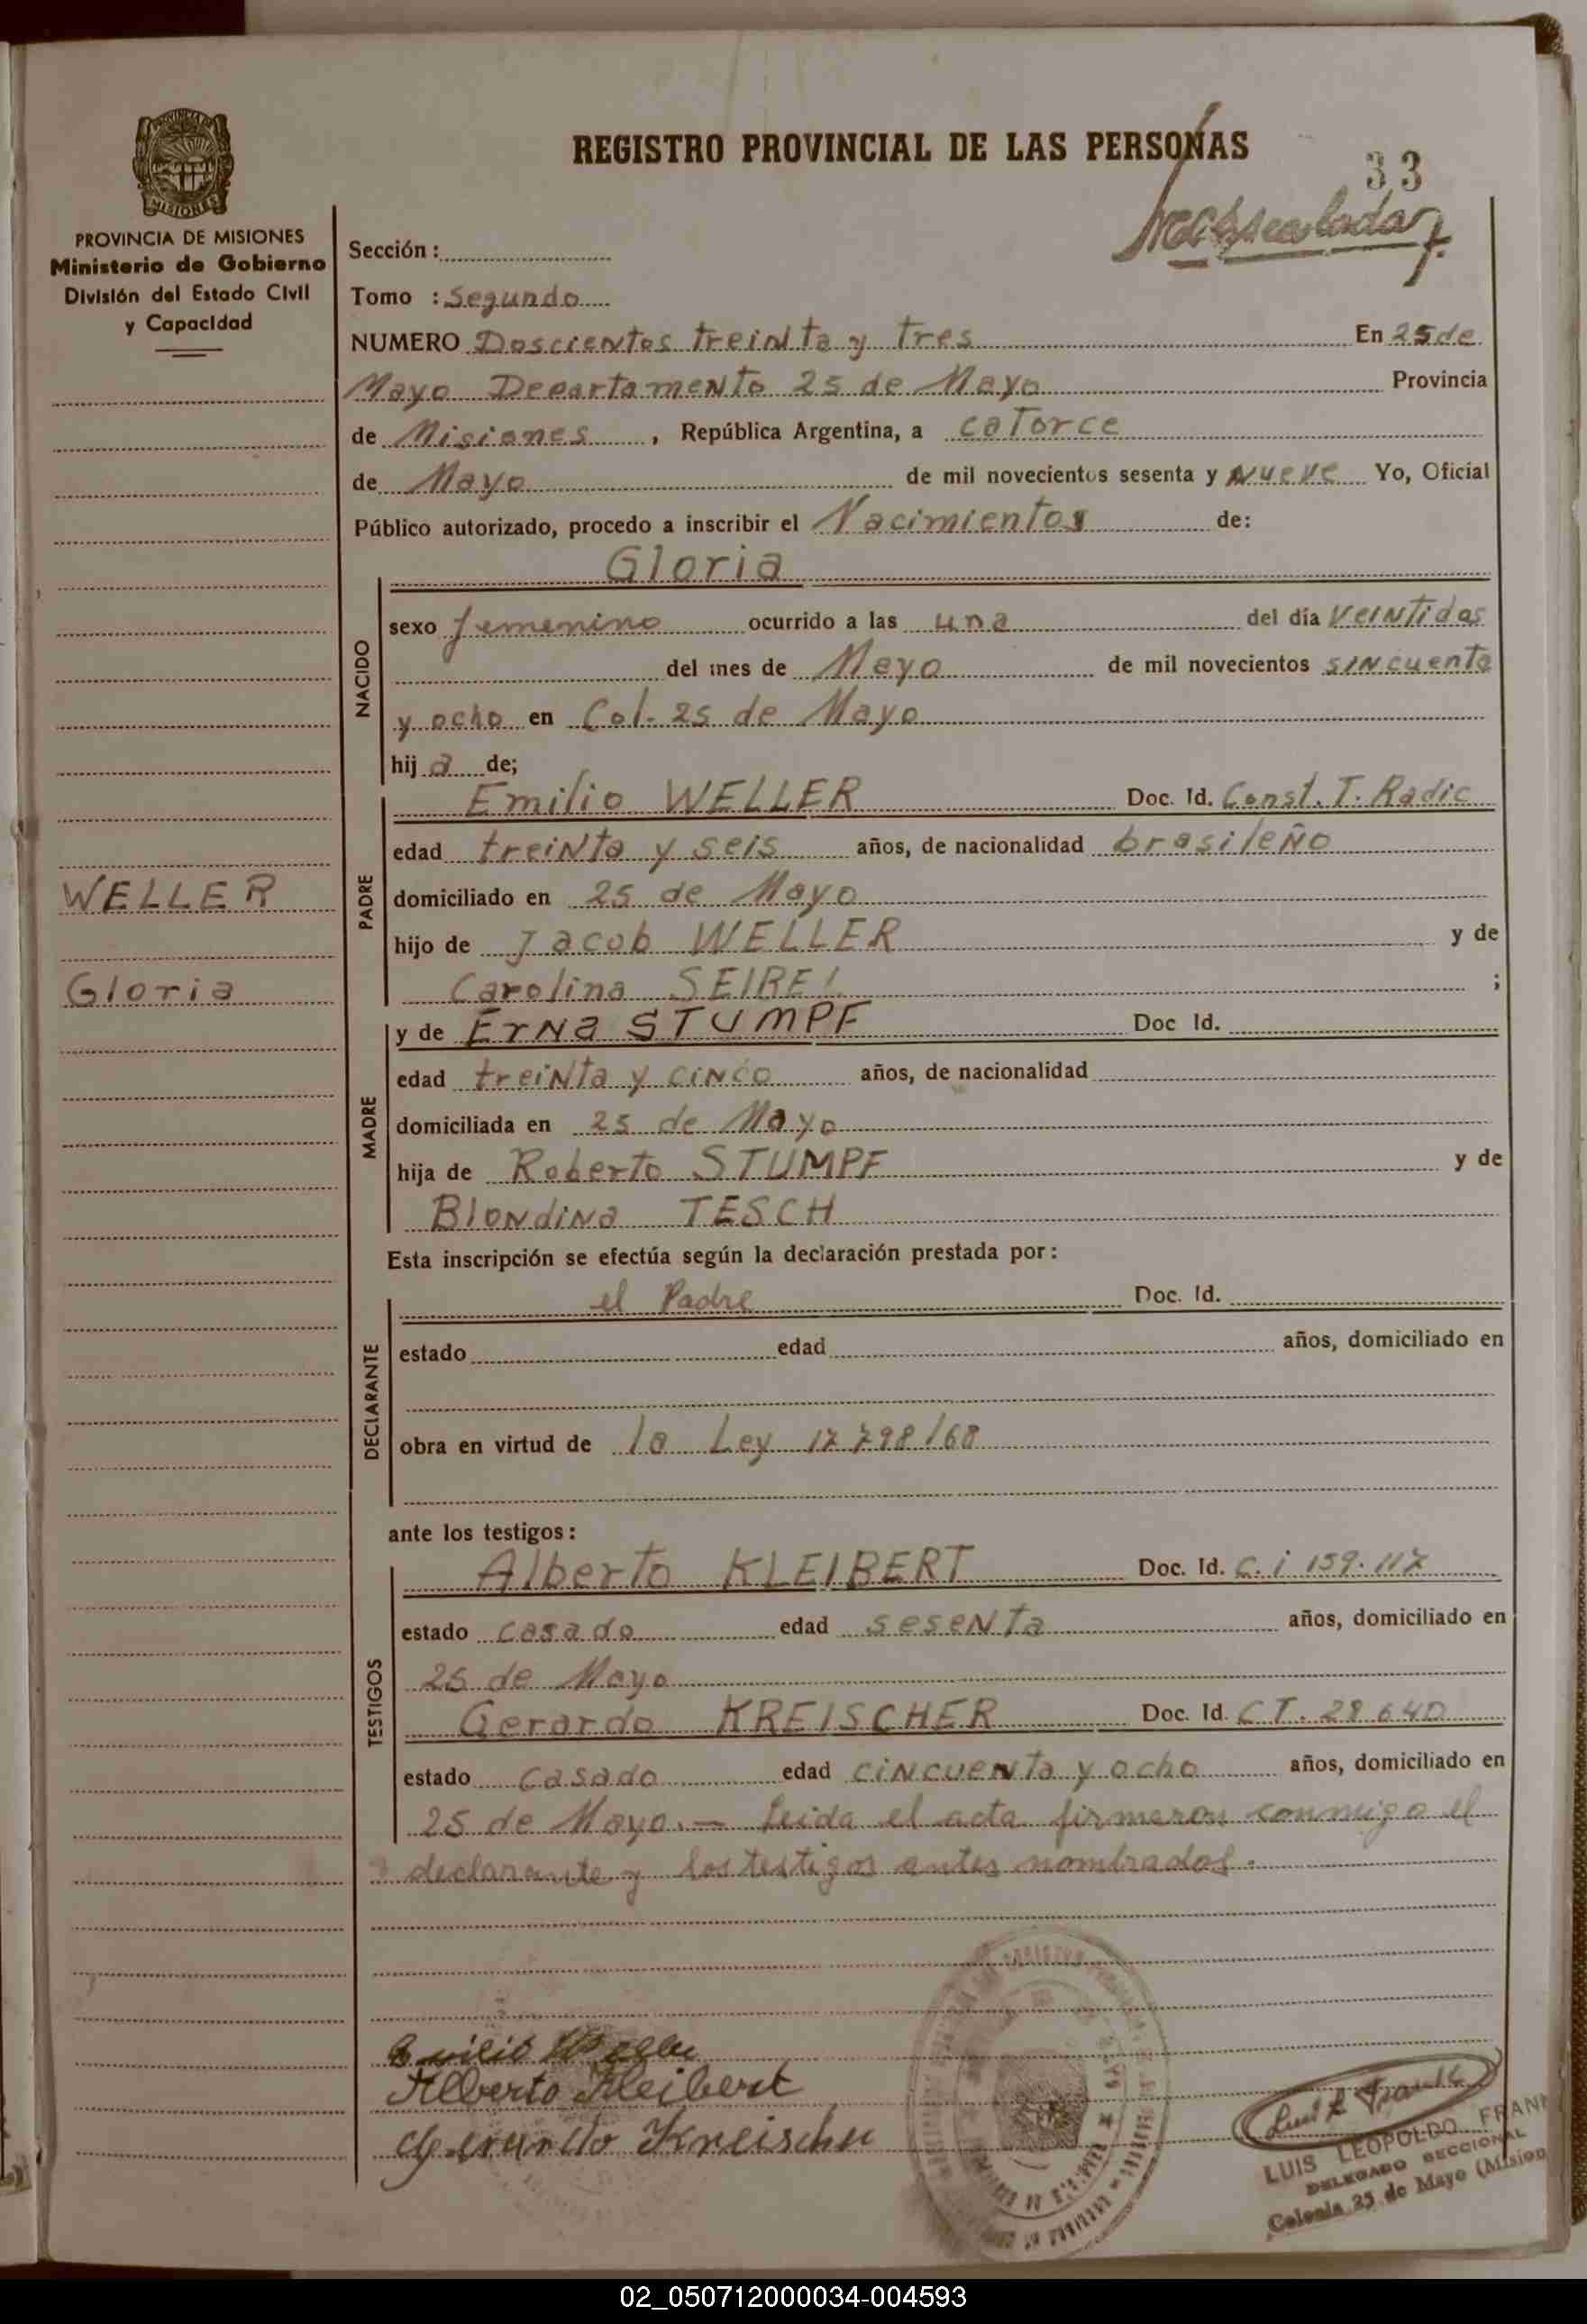 REGISTRO PROVINCIAL DE LAS PERSONAS
33
PROVINCIA DE MISIONES
Ministerio de Gobierno
División del Estado Civil
y Capacidad
Sección :
Tomo : Segundo
NUMERO Doscientos treinta y tres En 25 de
Mayo Departamento 25 de Mayo Provincia
de Misiones , República Argentina, a catorce
de Mayo de mil novecientos sesenta y nueve Yo, Oficial
Público autorizado, procedo a inscribir el Nacimientos de:
Gloria
NACIDO
sexo femenino ocurrido a las una del día veintidos
del mes de Mayo de mil novecientos sincuenta
y ocho en Col. 25 de Mayo
hij a de;
PADRE
Emilio WELLER Doc. Id. Const. T. Radic
edad treinta y seis años, de nacionalidad brasileño
domiciliado en 25 de Mayo
WELLER
hijo de Jacob WELLER y de
Gloria
Carolina SEIBEL ;
MADRE
y de Erna STUMPF Doc Id.
edad treinta y cinco años, de nacionalidad
domiciliada en 25 de Mayo
hija de Roberto STUMPF y de
Blondina TESCH
Esta inscripción se efectúa según la declaración prestada por:
DECLARANTE
el Padre Doc. Id.
estado edad años, domiciliado en
obra en virtud de la Ley 17798/68
ante los testigos:
TESTIGOS
Alberto KLEIBERT Doc. Id. C. i 159.117
estado casado edad sesenta años, domiciliado en
25 de Mayo
Gerardo KREISCHER Doc. Id. C T. 28640
estado casado edad cincuenta y ocho años, domiciliado en
25 de Mayo. — Leida el acta firmaron conmigo el
declarante y los testigos antes nombrados.
Emilio Weller
Alberto Kleibert
Gerardo Kreischer
LUIS LEOPOLDO FRANK
DELEGADO SECCIONAL
Colonia 25 de Mayo (Mision
02_050712000034-004593